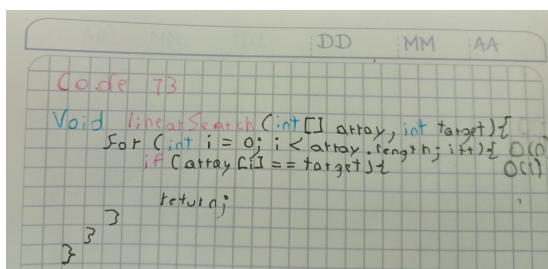 DD MM AA
Code 73
Void linearSearch (int[] array, int target){
For (int i = 0; i < array.length; i++){ O(n)
if (array [i] == target){ O(1)
return;
}
}
}